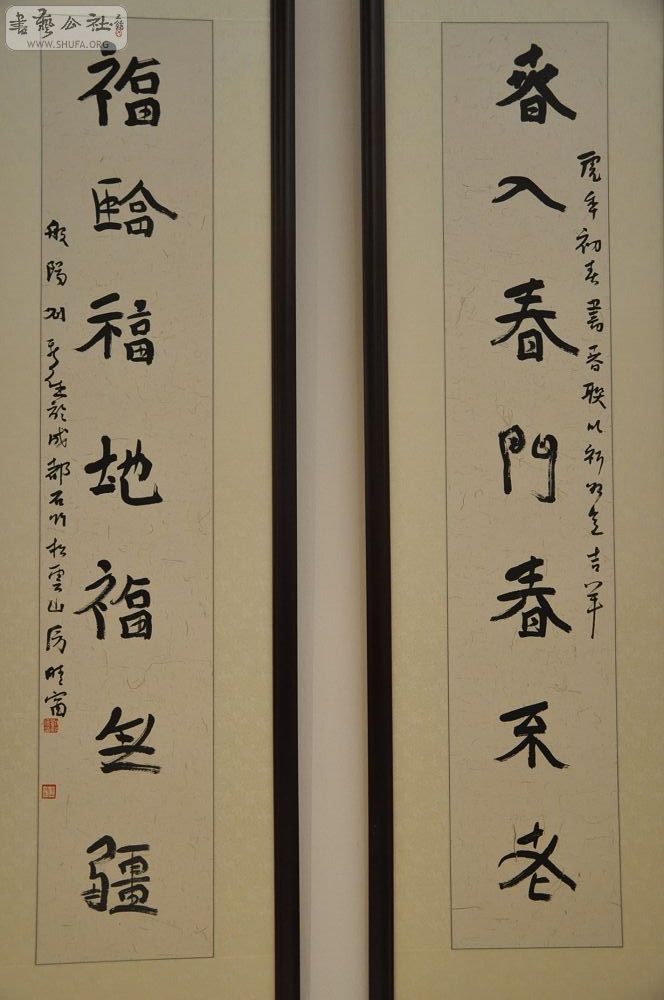 書藝公社
WWW.SHUFA.ORG
春入春門春不老
虎年初春書春聯以祈
吉羊
福臨福地福無疆
般陽
於成都石
松雲山房